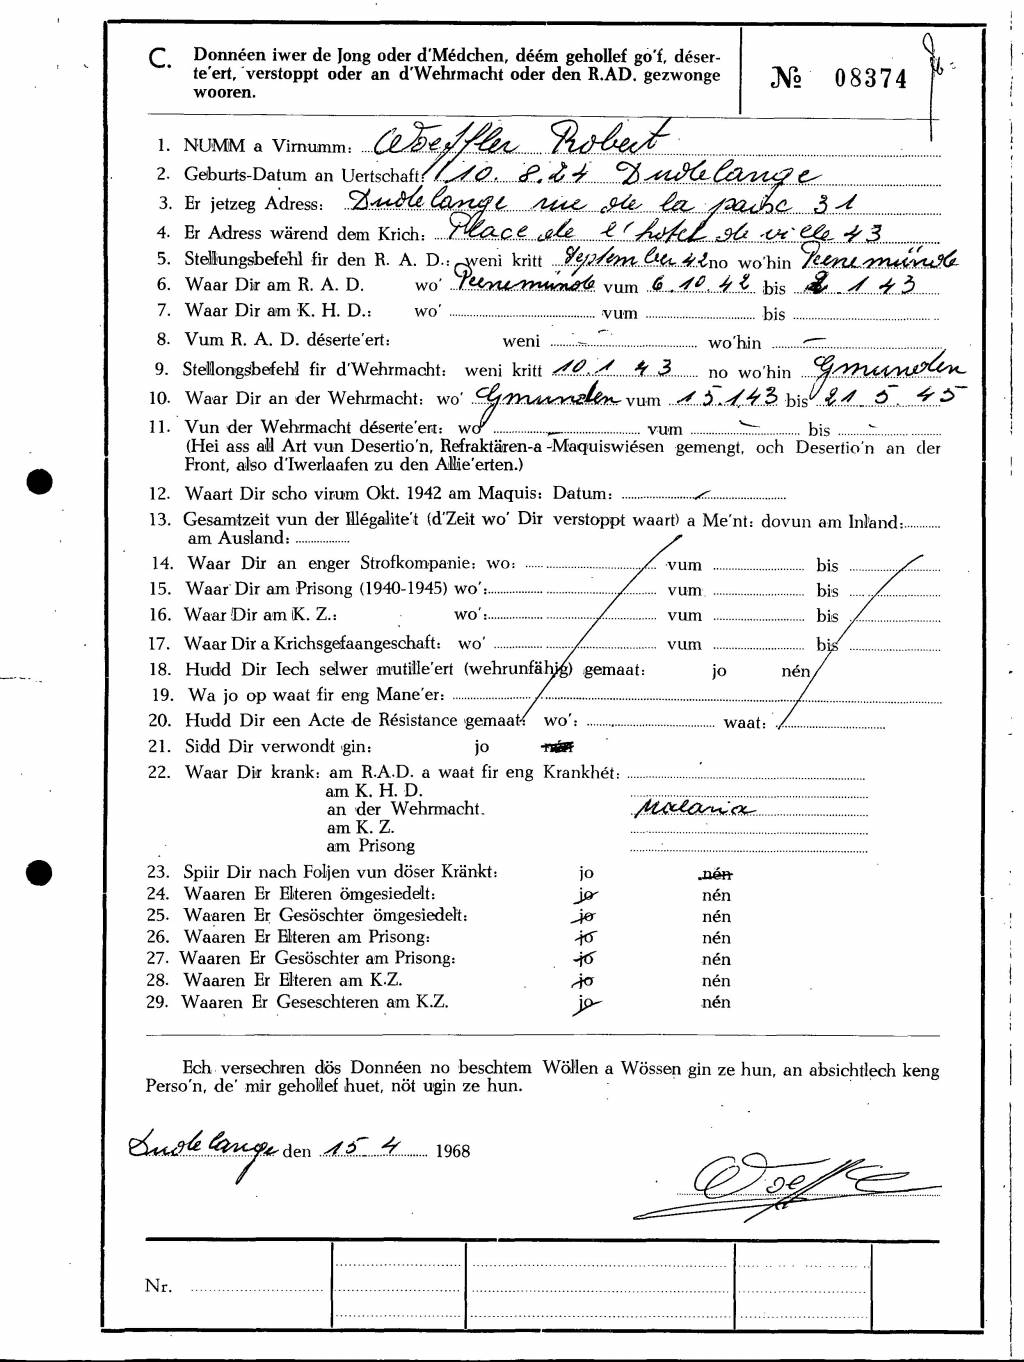 C. Donnéen iwer de Jong oder d'Médchen, déém gehollef go'f, déser-
te'ert, verstoppt oder an d'Wehrmacht oder den R.AD. gezwonge
wooren.
№ 08374
1. NUMM a Virnumm: Woeffler Robert
2. Geburts-Datum an Uertschaft: 10. 8. 24 Dudelange
3. Er jetzeg Adress: Dudelange rue de la paix 31
4. Er Adress wärend dem Krich: Place de l'hotel de ville 43
5. Stellungsbefehl fir den R. A. D.: weni kritt September 42 no wo'hin Peenemünde
6. Waar Dir am R. A. D. wo' Peenemünde vum 6.10.42 bis 2.1 43
7. Waar Dir am K. H. D.: wo' vum bis
8. Vum R. A. D. déserte'ert: weni — wo'hin —
9. Stellongsbefehl fir d'Wehrmacht: weni kritt 10.1 43 no wo'hin Gmunden
10. Waar Dir an der Wehrmacht: wo' Gmunden vum 15.1.43 bis 21. 5. 45
11. Vun der Wehrmacht déserte'ert: wo' — vum — bis -
(Hei ass all Art vun Desertio'n, Refraktären-a -Maquiswiésen gemengt, och Desertio'n an der
Front, also d'Iwerlaafen zu den Allie'erten.)
12. Waart Dir scho virum Okt. 1942 am Maquis: Datum:
13. Gesamtzeit vun der Illégalite't (d'Zeit wo' Dir verstoppt waart) a Me'nt: dovun am Inland:
am Ausland:
14. Waar Dir an enger Strofkompanie: wo: vum bis
15. Waar Dir am Prisong (1940-1945) wo': vum bis
16. Waar Dir am K. Z.: wo': vum bis
17. Waar Dir a Krichsgefaangeschaft: wo' vum bis
18. Hudd Dir Iech selwer mutille'ert (wehrunfähig) gemaat: jo nén
19. Wa jo op waat fir eng Mane'er:
20. Hudd Dir een Acte de Résistance gemaat: wo': waat:
21. Sidd Dir verwondt gin: jo nén
22. Waar Dir krank: am R.A.D. a waat fir eng Krankhét:
am K. H. D.
an der Wehrmacht. Malaria
am K. Z.
am Prisong
23. Spiir Dir nach Foljen vun döser Kränkt: jo nén
24. Waaren Er Elteren ömgesiedelt: jo nén
25. Waaren Er Gesöschter ömgesiedelt: jo nén
26. Waaren Er Elteren am Prisong: jo nén
27. Waaren Er Gesöschter am Prisong: jo nén
28. Waaren Er Elteren am K.Z. jo nén
29. Waaren Er Geseschteren am K.Z. jo nén
Ech versechren dös Donnéen no beschtem Wöllen a Wössen gin ze hun, an absichtlech keng
Perso'n, de' mir gehollef huet, nöt ugin ze hun.
Dudelange den 15. 4 1968
Nr.